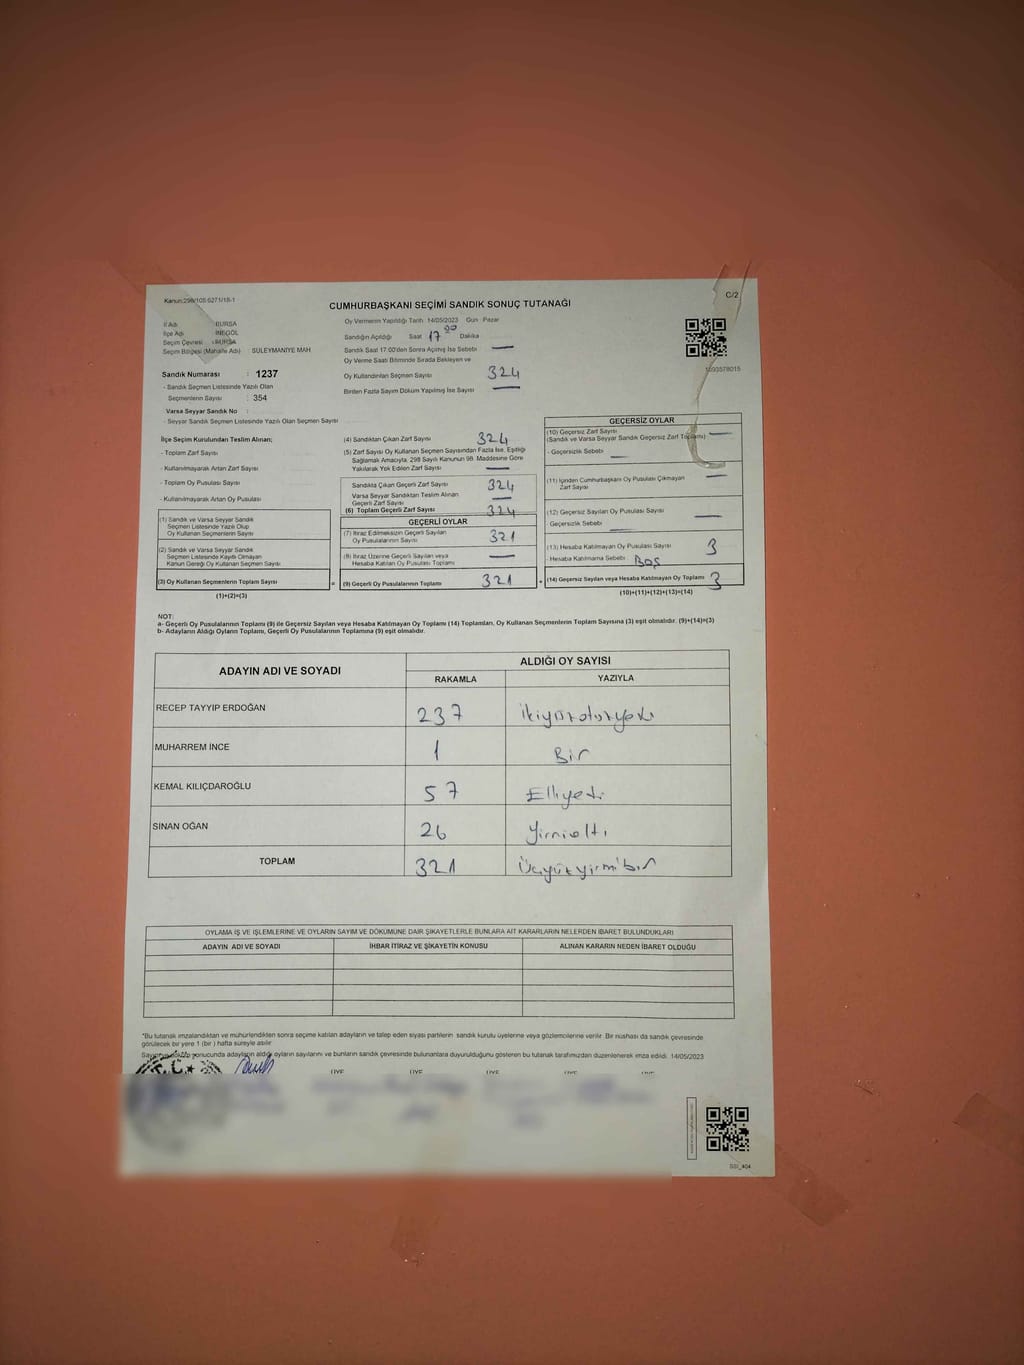 Kanun:298/105 6271/18-1
C/2
CUMHURBAŞKANI SEÇİMİ SANDIK SONUÇ TUTANAĞI
İl Adı : BURSA
İlçe Adı : İNEGÖL
Seçim Çevresi : BURSA
Seçim Bölgesi (Mahalle Adı) SÜLEYMANİYE MAH
Sandık Numarası : 1237
- Sandık Seçmen Listesinde Yazılı Olan
Seçmenlerin Sayısı : 354
Varsa Seyyar Sandık No :
- Seyyar Sandık Seçmen Listesinde Yazılı Olan Seçmen Sayısı
Oy Vermenin Yapıldığı Tarih 14/05/2023 Gün Pazar
Sandığın Açıldığı Saat 17 00 Dakika
Sandık Saat 17:00'den Sonra Açılmış İse Sebebi —
Oy Verme Saati Bitiminde Sırada Bekleyen ve
Oy Kullandırılan Seçmen Sayısı 324
Birden Fazla Sayım Döküm Yapılmış İse Sayısı —
İlçe Seçim Kurulundan Teslim Alınan;
- Toplam Zarf Sayısı
- Kullanılmayarak Artan Zarf Sayısı
- Toplam Oy Pusulası Sayısı
- Kullanılmayarak Artan Oy Pusulası
(1) Sandık ve Varsa Seyyar Sandık
Seçmen Listesinde Yazılı Olup
Oy Kullanan Seçmenlerin Sayısı
(2) Sandık ve Varsa Seyyar Sandık
Seçmen Listesinde Kaydı Olmayan
Kanun Gereği Oy Kullanan Seçmen Sayısı
(3) Oy Kullanan Seçmenlerin Toplam Sayısı =
(1)+(2)=(3)
(4) Sandıktan Çıkan Zarf Sayısı 324
(5) Zarf Sayısı Oy Kullanan Seçmen Sayısından Fazla İse, Eşitliği
Sağlamak Amacıyla, 298 Sayılı Kanunun 98. Maddesine Göre
Yakılarak Yok Edilen Zarf Sayısı —
Sandıkta Çıkan Geçerli Zarf Sayısı 324
Varsa Seyyar Sandıktan Teslim Alınan
Geçerli Zarf Sayısı —
(6) Toplam Geçerli Zarf Sayısı 324
GEÇERLİ OYLAR
(7) İtiraz Edilmeksizin Geçerli Sayılan
Oy Pusulalarının Sayısı 321
(8) İtiraz Üzerine Geçerli Sayılan veya
Hesaba Katılan Oy Pusulası Toplamı —
(9) Geçerli Oy Pusulalarının Toplamı 321 +
GEÇERSİZ OYLAR
(10) Geçersiz Zarf Sayısı —
(Sandık ve Varsa Seyyar Sandık Geçersiz Zarf Toplamı)
- Geçersizlik Sebebi —
(11) İçinden Cumhurbaşkanı Oy Pusulası Çıkmayan
Zarf Sayısı —
(12) Geçersiz Sayılan Oy Pusulası Sayısı —
- Geçersizlik Sebebi —
(13) Hesaba Katılmayan Oy Pusulası Sayısı 3
- Hesaba Katılmama Sebebi BOŞ
(14) Geçersiz Sayılan veya Hesaba Katılmayan Oy Toplamı 3
(10)+(11)+(12)+(13)=(14)
NOT:
a- Geçerli Oy Pusulalarının Toplamı (9) ile Geçersiz Sayılan veya Hesaba Katılmayan Oy Toplamı (14) Toplamları, Oy Kullanan Seçmenlerin Toplam Sayısına (3) eşit olmalıdır. (9)+(14)=(3)
b- Adayların Aldığı Oyların Toplamı, Geçerli Oy Pusulalarının Toplamına (9) eşit olmalıdır.
ADAYIN ADI VE SOYADI
ALDIĞI OY SAYISI
RAKAMLA YAZIYLA
RECEP TAYYİP ERDOĞAN 237 ikiyüzotuzyedi
MUHARREM İNCE 1 Bir
KEMAL KILIÇDAROĞLU 57 Elliyedi
SİNAN OĞAN 26 yirmialtı
TOPLAM 321 Üçyüzyirmibir
OYLAMA İŞ VE İŞLEMLERİNE VE OYLARIN SAYIM VE DÖKÜMÜNE DAİR ŞİKAYETLERLE BUNLARA AİT KARARLARIN NELERDEN İBARET BULUNDUKLARI
ADAYIN ADI VE SOYADI İHBAR İTİRAZ VE ŞİKAYETİN KONUSU ALINAN KARARIN NEDEN İBARET OLDUĞU
*Bu tutanak imzalandıktan ve mühürlendikten sonra seçime katılan adayların ve talep eden siyasi partilerin sandık kurulu üyelerine veya gözlemcilerine verilir. Bir nüshası da sandık çevresinde
görülecek bir yere 1 (bir) hafta süreyle asılır
Sayım ve döküm sonucunda adayların aldığı oyların sayılarını ve bunların sandık çevresinde bulunanlara duyurulduğunu gösteren bu tutanak tarafımızdan düzenlenerek imza edildi. 14/05/2023
T.C.
ÜYE ÜYE ÜYE ÜYE ÜYE
SSI_404